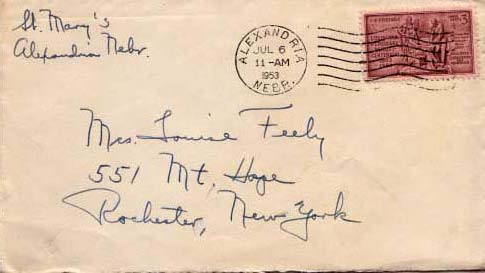 St. Mary's
Alexandria Nebr.
ALEXANDRIA
JUL 6
11-AM
1953
NEBR.
3
Mrs. Louise Feely
551 Mt. Hope
Rochester, New York